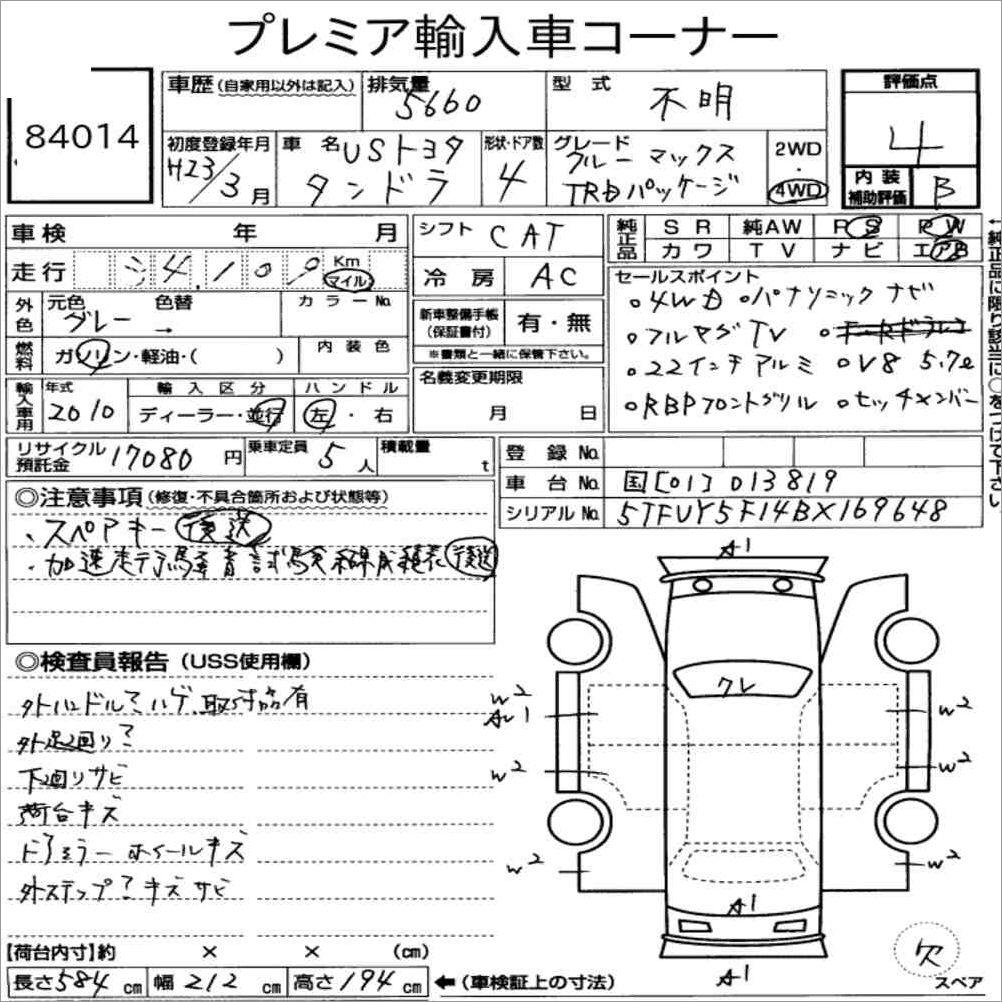 プレミア輸入車コーナー
84014
車歴(自家用以外は記入)
排気量 5660
型式 不明
評価点 4
初度登録年月 H23/3月
車名 USトヨタ タンドラ
形状・ドア数 4
グレード クルーマックス TRDパッケージ
2WD・4WD
内装補助評価 B
車検 年 月
シフト CAT
純正品 SR 純AW PS PW
カワ TV ナビ エアB
走行 34,109 Km マイル
冷房 AC
セールスポイント
○4WD ○パナソニックナビ
○フルセグTV
○22インチアルミ ○V8 5.7ℓ
○RBPフロントグリル ○ヒッチメンバー
←純正品に限り該当に○をつけて下さい
外色 元色 グレー 色替 → カラーNo.
新車整備手帳(保証書付) 有・無
※書類と一緒に保管下さい。
燃料 ガソリン・軽油・( ) 内装色
名義変更期限 月 日
輸入車用 年式 2010
輸入区分 ディーラー・並行
ハンドル 左・右
リサイクル預託金 17080円
乗車定員 5人
積載量 t
登録No.
車台No. 国[01]013819
シリアルNo. 5TFUY5F14BX169648
◎注意事項(修復・不具合箇所および状態等)
・スペアキー 後送
・加速走行騒音試験 後送
◎検査員報告(USS使用欄)
外ハンドルミハゲ、取付部有
外足回りミ
下回りサビ
荷台キズ
ドアミラー ホイールキズ
外ステップミキズサビ
A1
クレ
W2
A1
W2
W2
W2
W2
W2
A1
A1
欠
スペア
【荷台内寸】約 × × (cm)
長さ584cm 幅212cm 高さ194cm ←(車検証上の寸法)